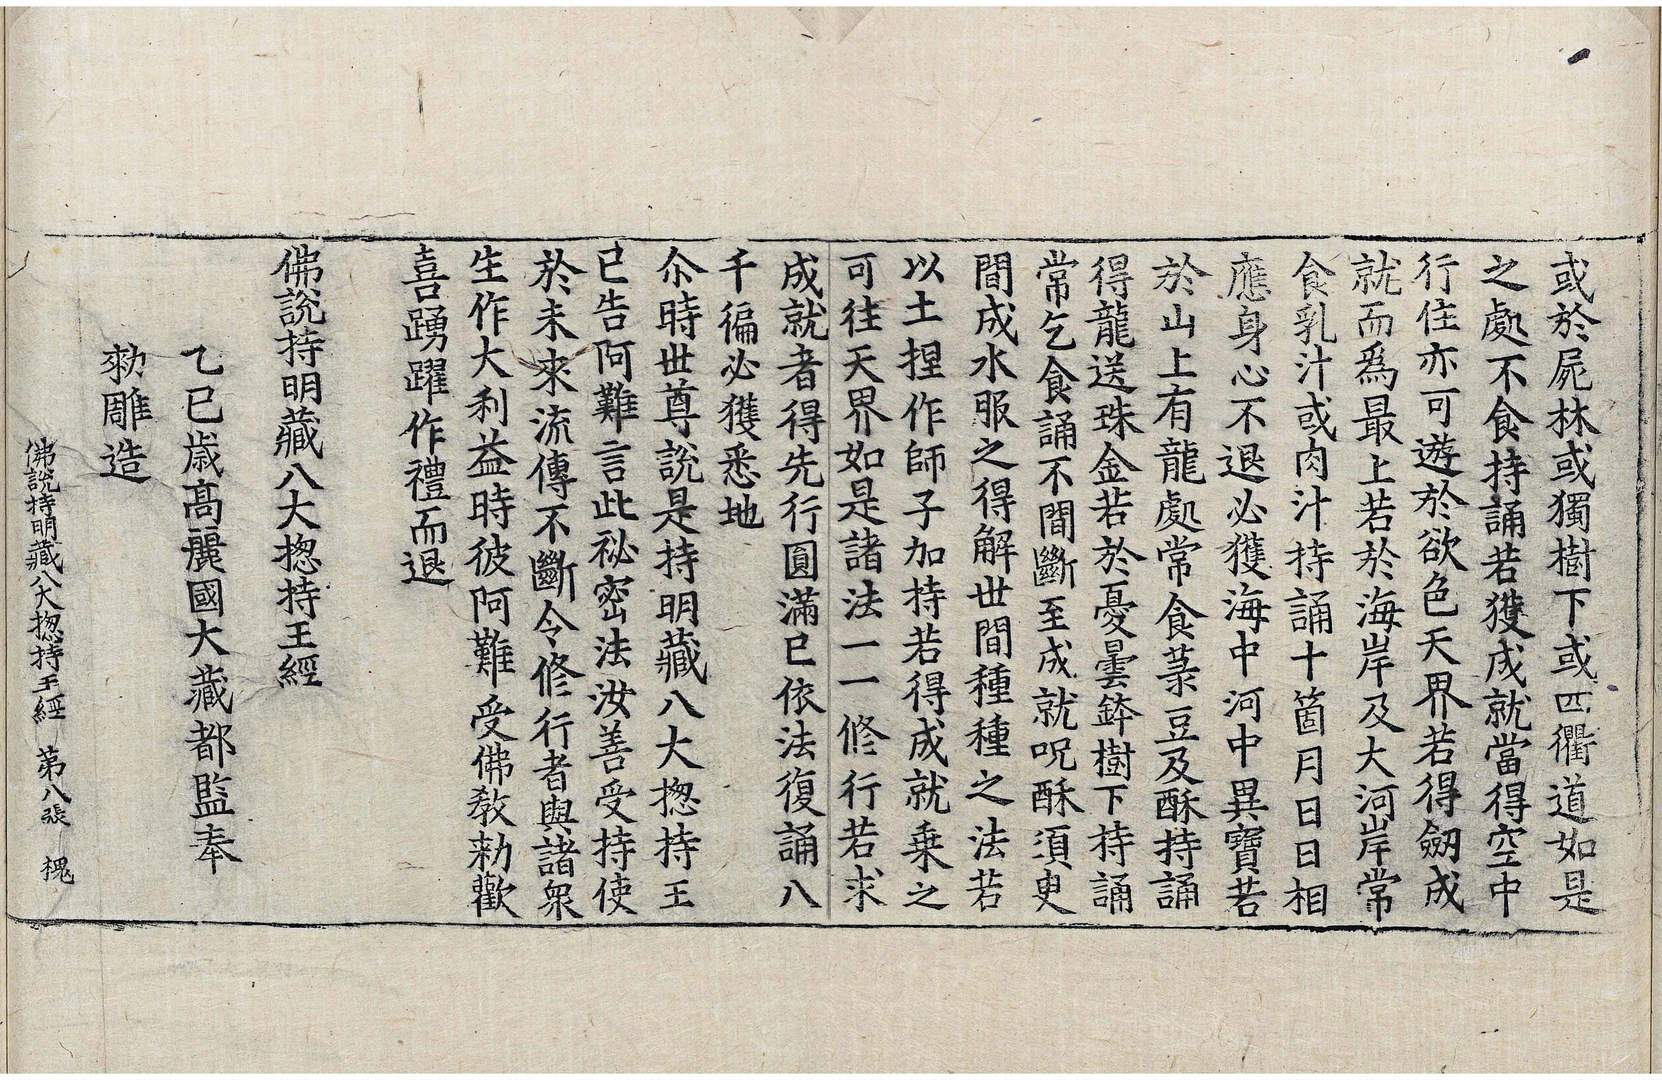 或於屍林或獨樹下或四衢道如是
之處不食持誦若獲成就當得空中
行住亦可遊於欲色天界若得劒成
就而爲最上若於海岸及大河岸常
食乳汁或肉汁持誦十箇月日日相
應身心不退必獲海中河中異寶若
於山上有龍處常食菉豆及酥持誦
得龍送珠金若於憂曇鉢樹下持誦
常乞食誦不間斷至成就呪酥須臾
間成水服之得解世間種種之法若
以土捏作師子加持若得成就乗之
可往天界如是諸法一一修行若求
成就者得先行圓滿已依法復誦八
千徧必獲悉地
尒時世尊說是持明藏八大揔持王
已告阿難言此祕密法汝善受持使
於未來流傳不斷令修行者與諸衆
生作大利益時彼阿難受佛敎勑歡
喜踴躍作禮而退
佛說持明藏八大揔持王經
乙巳歲高麗國大藏都監奉
勑雕造
佛說持明藏八大揔持王經 第八張 槐